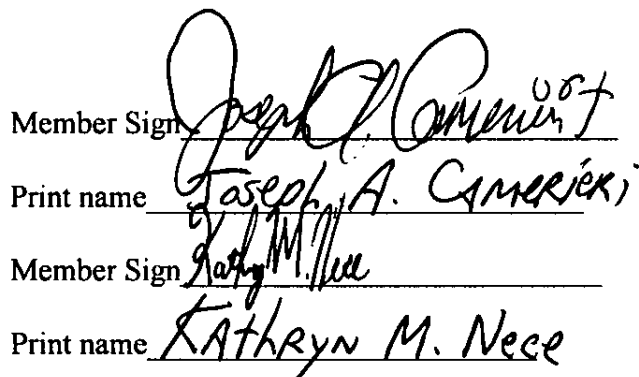 Member Sign Joseph A. Camerieri
Print name Joseph A. CAMERIERI
Member Sign Kathryn M. Nece
Print name KAthRyN M. Nece